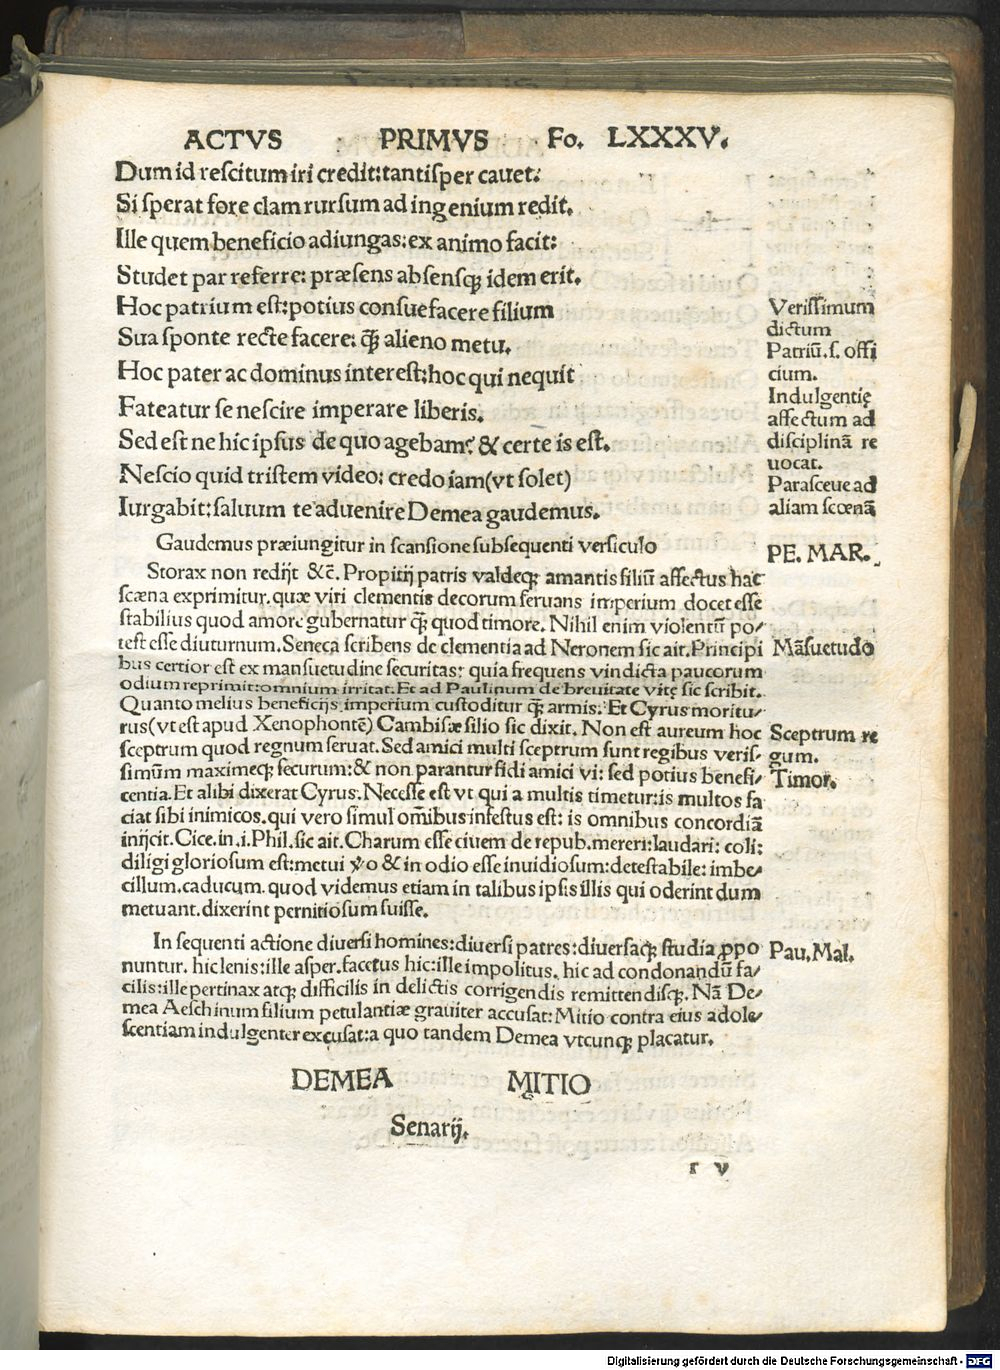 ACTVS PRIMVS Fo. LXXXV.
Dum id rescitum iri credit: tantisper cauet:
Si sperat fore clam rursum ad ingenium redit.
Ille quem beneficio adiungas: ex animo facit:
Studet par referre: præsens absensq̃ idem erit.
Hoc patrium est: potius consuefacere filium
Sua sponte recte facere: q̃̃ alieno metu.
Hoc pater ac dominus interest: hoc qui nequit
Fateatur se nescire imperare liberis.
Sed est ne hic ipsus de quo agebam? & certe is est.
Nescio quid tristem video: credo iam (vt solet)
Iurgabit: saluum te aduenire Demea gaudemus.
Verissimum
dictum
Patriũ. s. offi
cium.
Indulgentię
affectum ad
disciplinã re
uocat.
Parasceue ad
aliam scœnã
Gaudemus præiungitur in scansione subsequenti versiculo
PE. MAR.
Storax non redijt &c̃. Propitij patris valdeq̃ amantis filiũ affectus hac
scæna exprimitur. quæ viri clementis decorum seruans imperium docet esse
stabilius quod amore gubernatur q̃̃ quod timore. Nihil enim violentũ po/
test esse diuturnum. Seneca scribens de clementia ad Neronem sic ait. Principi
bus certior est ex mansuetudine securitas: quia frequens vindicta paucorum
odium reprimit: omnium irritat. Et ad Paulinum de breuitate vitę sic scribit.
Quanto melius beneficijs imperium custoditur q̃̃ armis. Et Cyrus moritu/
rus (vt est apud Xenophontẽ) Cambisæ filio sic dixit. Non est aureum hoc
sceptrum quod regnum seruat. Sed amici multi sceptrum sunt regibus veris/
simũm maximeq̃ securum: & non parantur fidi amici vi: sed potius benefi/
centia. Et alibi dixerat Cyrus. Necesse est vt qui a multis timetur: is multos fa
ciat sibi inimicos. qui vero simul om̃ibus infestus est: is omnibus concordiã
inijcit. Cice. in. i. Phil. sic ait. Charum esse ciuem de repub. mereri: laudari: coli:
diligi gloriosum est: metui ṽo & in odio esse inuidiosum: detestabile: imbe/
cillum. caducum. quod videmus etiam in talibus ipsis illis qui oderint dum
metuant. dixerint pernitiosum fuisse.
Mãsuetudo
Sceptrum re
gum.
Timor.
In sequenti actione diuersi homines: diuersi patres: diuersaq̃ studia ꝓpo
nuntur. hic lenis: ille asper. facetus hic: ille impolitus. hic ad condonandũ fa/
cilis: ille pertinax atq̃ difficilis in delictis corrigendis remittendisq̃. Nã De/
mea Aeschinum filium petulantiæ grauiter accusat: Mitio contra eius adole/
scentiam indulgenter excusat: a quo tandem Demea vtcunq̃ placatur.
Pau. Mal.
DEMEA MITIO
Senarij.
r v
Digitalisierung gefördert durch die Deutsche Forschungsgemeinschaft - DFG